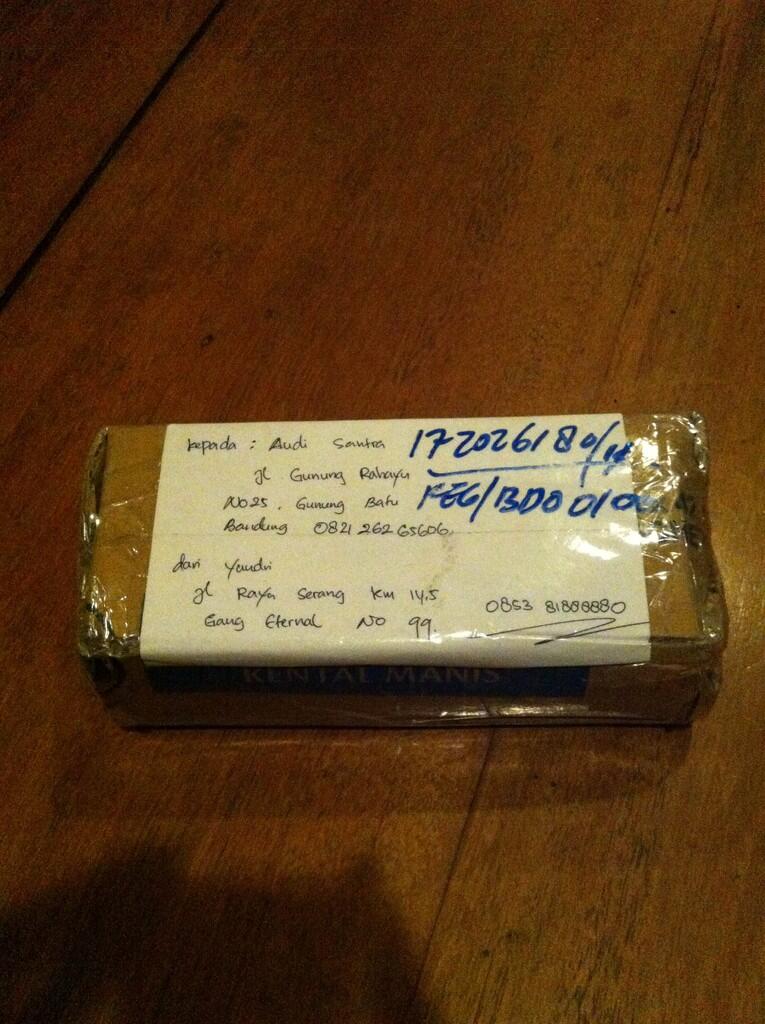 kepada : Audi Santra
jl Gunung Rahayu
No 25 . Gunung Batu
Bandung 0821 262 65606
172026180/
/BDO 010
dari Yaudri
jl Raya Serang Km 14.5
Gang Eternal No 99.
0853 81888880
RENTAL MANIS